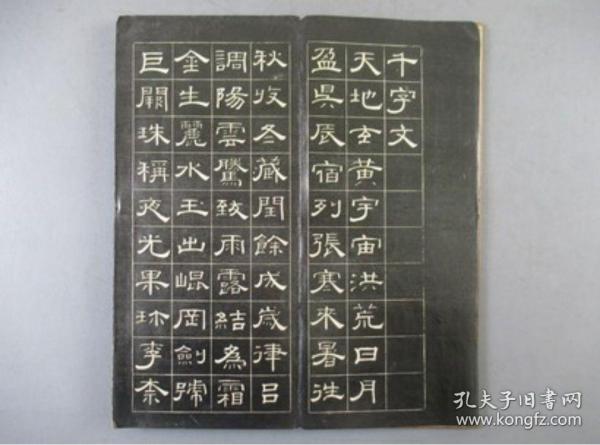 千字文
天地玄黃宇宙洪荒日月
盈昃辰宿列張寒来暑往
秋收冬藏閏餘成歲律呂
調陽雲騰致雨露結為霜
金生麗水玉出崐岡劍號
巨闕珠稱夜光果珎李柰
孔夫子旧书网
www.kongfz.com